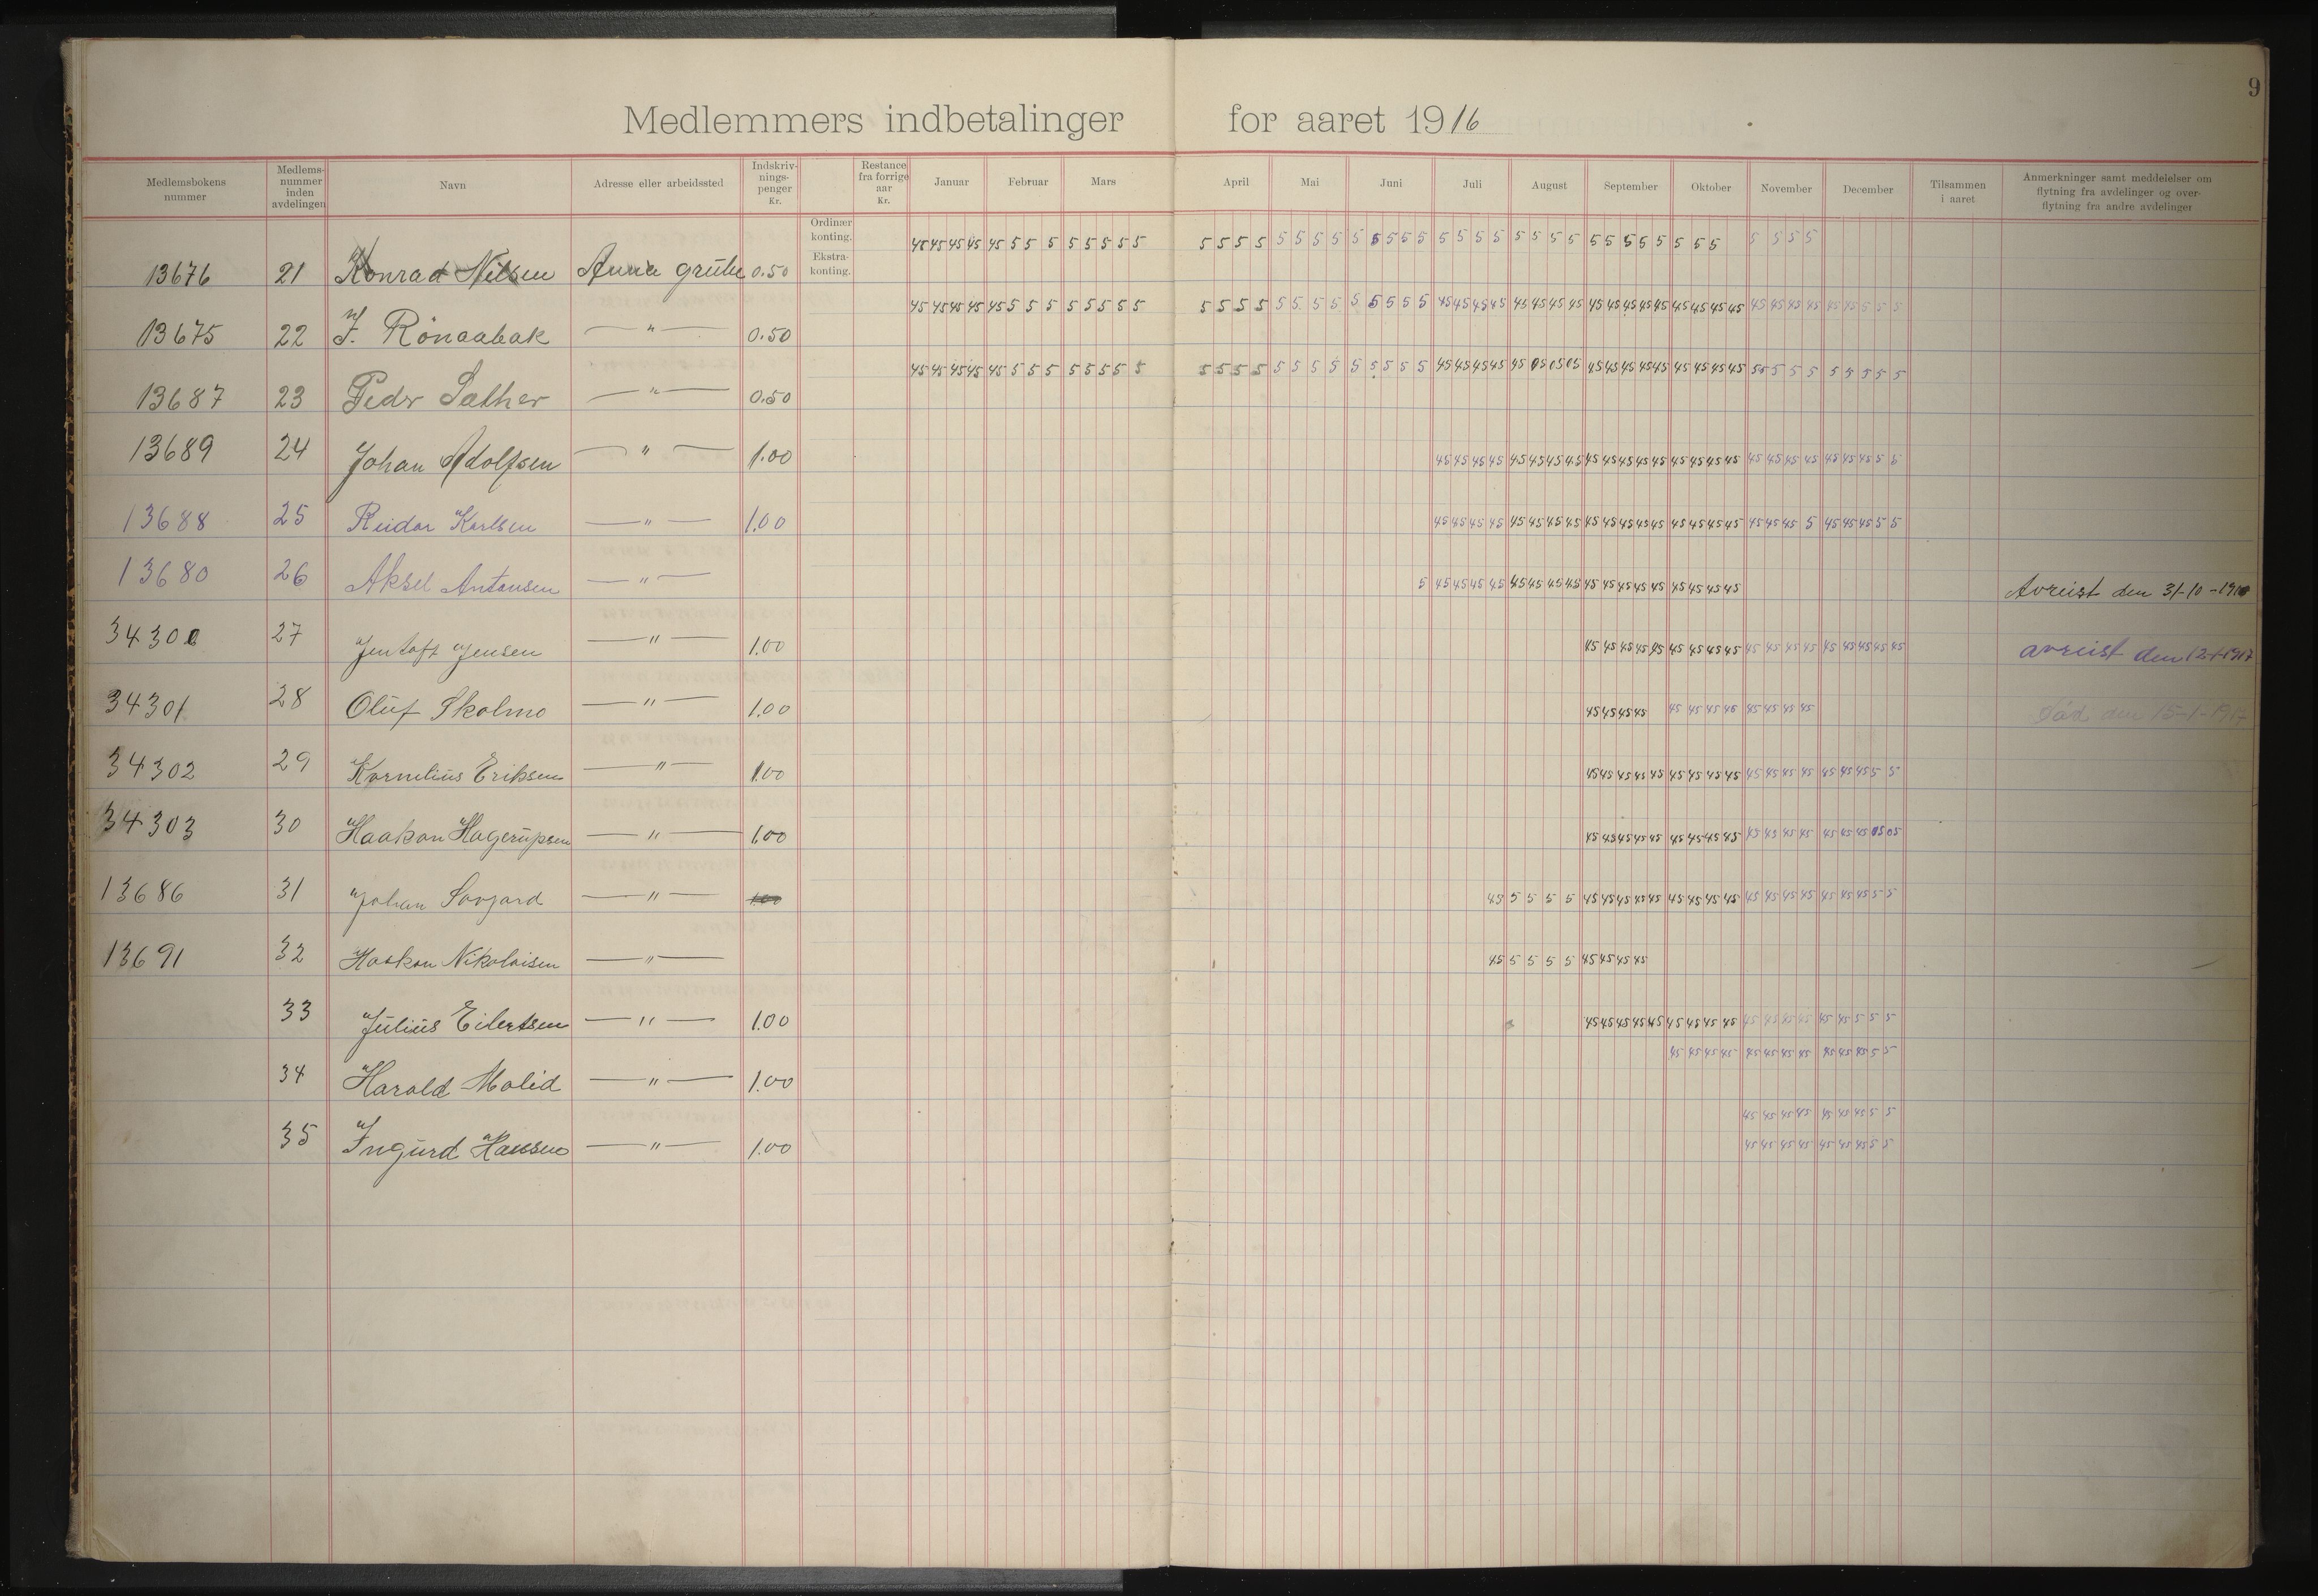 9
Medlemmers indbetalinger for aaret 1916
Medlemsbokens nummer
Medlems-nummer inden avdelingen
Navn
Adresse eller arbeidssted
Indskriv-nings-penger Kr.
Restance fra forrige aar Kr.
Januar Februar Mars April Mai Juni Juli August September Oktober November December
Tilsammen i aaret
Anmerkninger samt meddelelser om flytning fra avdelinger og over-flytning fra andre avdelinger
Ordinær konting.
Ekstra-konting.
45 45 45 45 45 5 5 5 5 5 5 5 5 5 5 5 5 5 5 5 5 5 5 5 5 5 5 5 5 5 5 5 5 5 5 5 5 5 5 5 5 5 5 5 5 5
13676 21 Konrad Nilsen Anna grube 0.50
45 45 45 45 45 5 5 5 5 5 5 5 5 5 5 5 5 5 5 5 5 5 5 5 5 5 45 45 45 45 45 45 45 45 45 45 45 45 45 45 45 45 45 45 45 45 45 45 45 5 5 5
13675 22 J. Rönaabak " 0.50
45 45 45 45 45 5 5 5 5 5 5 5 5 5 5 5 5 5 5 5 5 5 5 5 5 5 45 45 45 45 45 05 05 05 45 45 45 45 45 45 45 45 45 5 5 5 5 5 5 5 5 5
13687 23 Peder Sæther " 0.50
13689 24 Johan Adolfsen " 1.00 45 45 45 45 45 45 45 45 45 45 45 45 45 45 45 45 45 45 45 45 45 45 45 45 5 5
13688 25 Reidar Karlsen " 1.00 45 45 45 45 45 45 45 45 45 45 45 45 45 45 45 45 45 45 45 45 5 45 45 45 5 5
13680 26 Aksel Antonsen " 5 45 45 45 45 45 45 45 45 45 45 45 45 45 45 45 45 45 Avreist den 31-10-1916
34300 27 Jentoft Jensen " 1.00 45 45 45 45 45 45 45 45 45 45 45 45 45 45 45 45 45 45 avreist den 12-1-1917
34301 28 Oluf Skolmo " 1.00 45 45 45 45 45 45 45 45 45 45 45 45 Död den 15-1-1917
34302 29 Kornelius Eriksen " 1.00 45 45 45 45 45 45 45 45 45 45 45 45 45 45 45 45 5 5
34303 30 Haakon Hagerupsen " 1.00 45 45 45 45 45 45 45 45 45 45 45 45 45 45 45 45 05 05
13686 31 Johan " 1.00 45 5 5 5 5 45 45 45 45 45 45 45 45 45 45 45 45 45 45 45 45 5 5
13691 32 Haakon Nikolaisen " 45 5 5 5 5 45 45 45 45
33 Julius Eilertsen " 1.00 45 45 45 45 45 45 45 45 45 45 45 45 45 45 45 5 5 5
45 45 45 45 45 45 45 45 45 45 45 5 5
34 Harald Molid " 1.00
45 45 45 45 45 45 45 5 5
35 Ingurd Hansen " 1.00 45 45 45 45 45 45 45 5 5